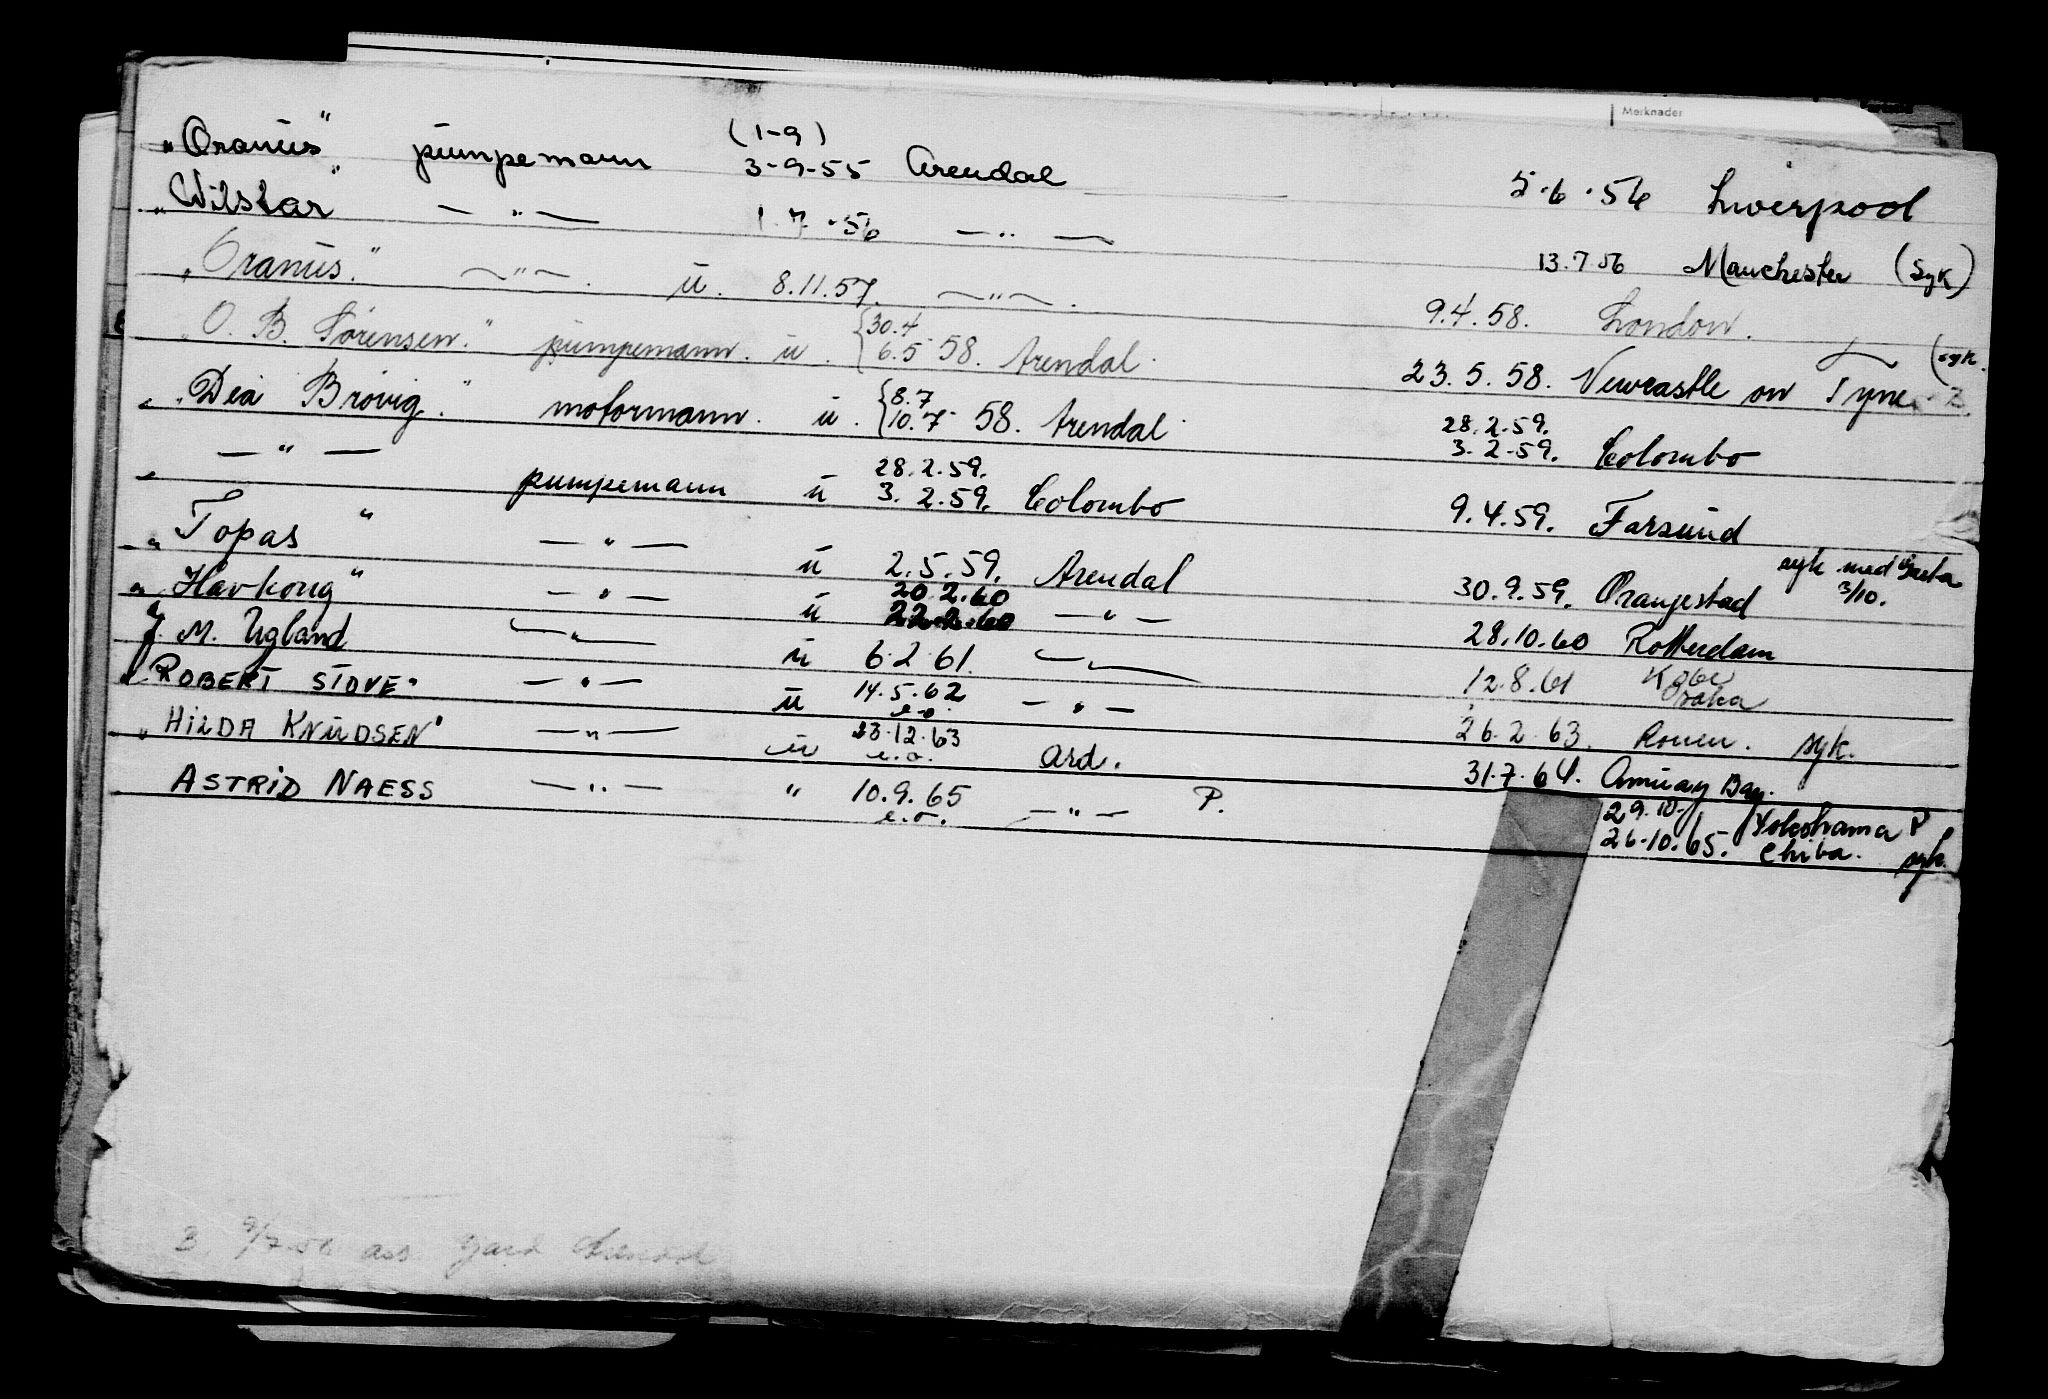 Merknader
"Oranús" pumpemann (1-9) 3-9-55 Arendal 5.6.56 Liverpool
"Wilstar" — " — 1.7.56 — " — 13.7.56 Manchester (syk)
"Oranús." — " — . ū. 8.11.57. — " — . 9.4.58. London.
"O. B. Sörensen." pumpemann. ū. {30.4 6.5 58. Arendal. 23.5.58. Newcastle on Tyne (syk.
"Dea Brövig." motormann. ū. {8.7 10.7 58. Arendal 28.2.59. 3.2.59. Colombo
— " — pumpemann ū 28.2.59. 3.2.59. Colombo 9.4.59. Farsund
"Topas" — " — ū 2.5.59. Arendal 30.9.59. Oranjestad syk med 3/10.
"Havkong" — " — ū 20.2.60 22.2.60 — " — 28.10.60 Rotterdam
J. M. Ugland — " — ū 6.2.61. — " — 12.8.61 Kobe Osaka
"ROBERT STOVE" — " — ū 14.5.62 e.o. — " — 26.2.63. Rouen. syk.
"HILDA KNÚDSEN" — " — ū 23.12.63 e.o. Ard. 31.7.64. Amuay Bay.
ASTRID NAESS — " — " 10.9.65 e.o. — " — P. 29.10. Yokohama P
26.10.65. Chiba. syk.
3. 9/7-56 ass. Gard Arendal